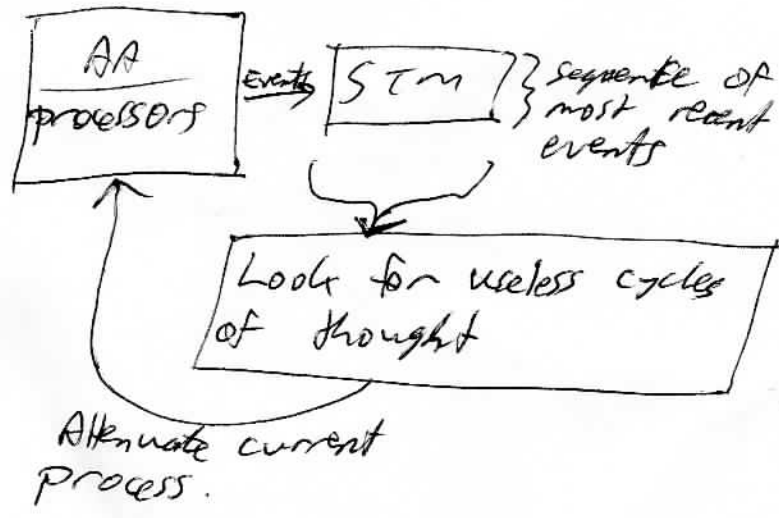 AA
processors
Events
STM
sequence of
most recent
events
Look for useless cycles
of thought
Attenuate current
process.